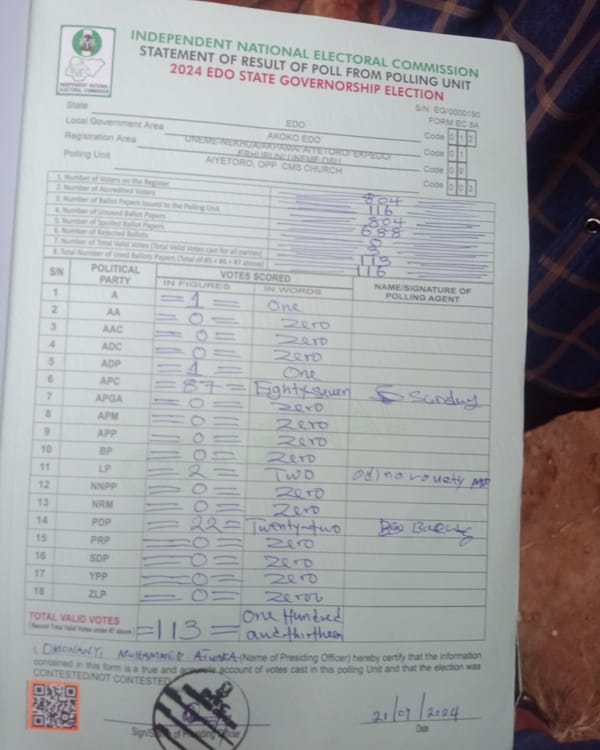 INDEPENDENT NATIONAL ELECTORAL COMMISSION
STATEMENT OF RESULT OF POLL FROM POLLING UNIT
2024 EDO STATE GOVERNORSHIP ELECTION
INDEPENDENT NATIONAL ELECTORAL COMMISSION
S/N. EG/0000190
FORM EC 8A
State EDO Code 0 1 2
Local Government Area AKOKO EDO Code 0 1
Registration Area UNEME-NEKHUA/AKPAMA/ AIYETORO/ EKPEDO/ ERHURUN/ UNEME OSU Code 0
Polling Unit AIYETORO, OPP. CMS CHURCH Code 0 0 3
1. Number of Voters on the Register 804
2. Number of Accredited Voters 116
3. Number of Ballot Papers Issued to the Polling Unit 804
4. Number of Unused Ballot Papers 688
5. Number of Spoiled Ballot Papers 0
6. Number of Rejected Ballots 3
7. Number of Total Valid Votes (Total Valid Votes cast for all parties) 113
8. Total Number of Used Ballots Papers (Total of #5 + #6 + #7 above) 116
S/N POLITICAL PARTY VOTES SCORED NAME/SIGNATURE OF POLLING AGENT
IN FIGURES IN WORDS
1 A =1= One
2 AA =0= Zero
3 AAC =0= Zero
4 ADC =0= Zero
5 ADP =1= One
6 APC =87= Eighty-seven Sunday
7 APGA =0= Zero
8 APM =0= Zero
9 APP =0= Zero
10 BP =0= Zero
11 LP =2= Two
12 NNPP =0= Zero
13 NRM =0= Zero
14 PDP =22= Twenty-two
15 PRP =0= Zero
16 SDP =0= Zero
17 YPP =0= Zero
18 ZLP =0= Zero
TOTAL VALID VOTES =113= One Hundred and thirteen
(Record Total Valid Votes under #7 above)
I, MUHAMMED (Name of Presiding Officer) hereby certify that the information
contained in this form is a true and accurate account of votes cast in this polling Unit and that the election was
CONTESTED/NOT CONTESTED
21/09/2024
Sign/ of Presiding Officer